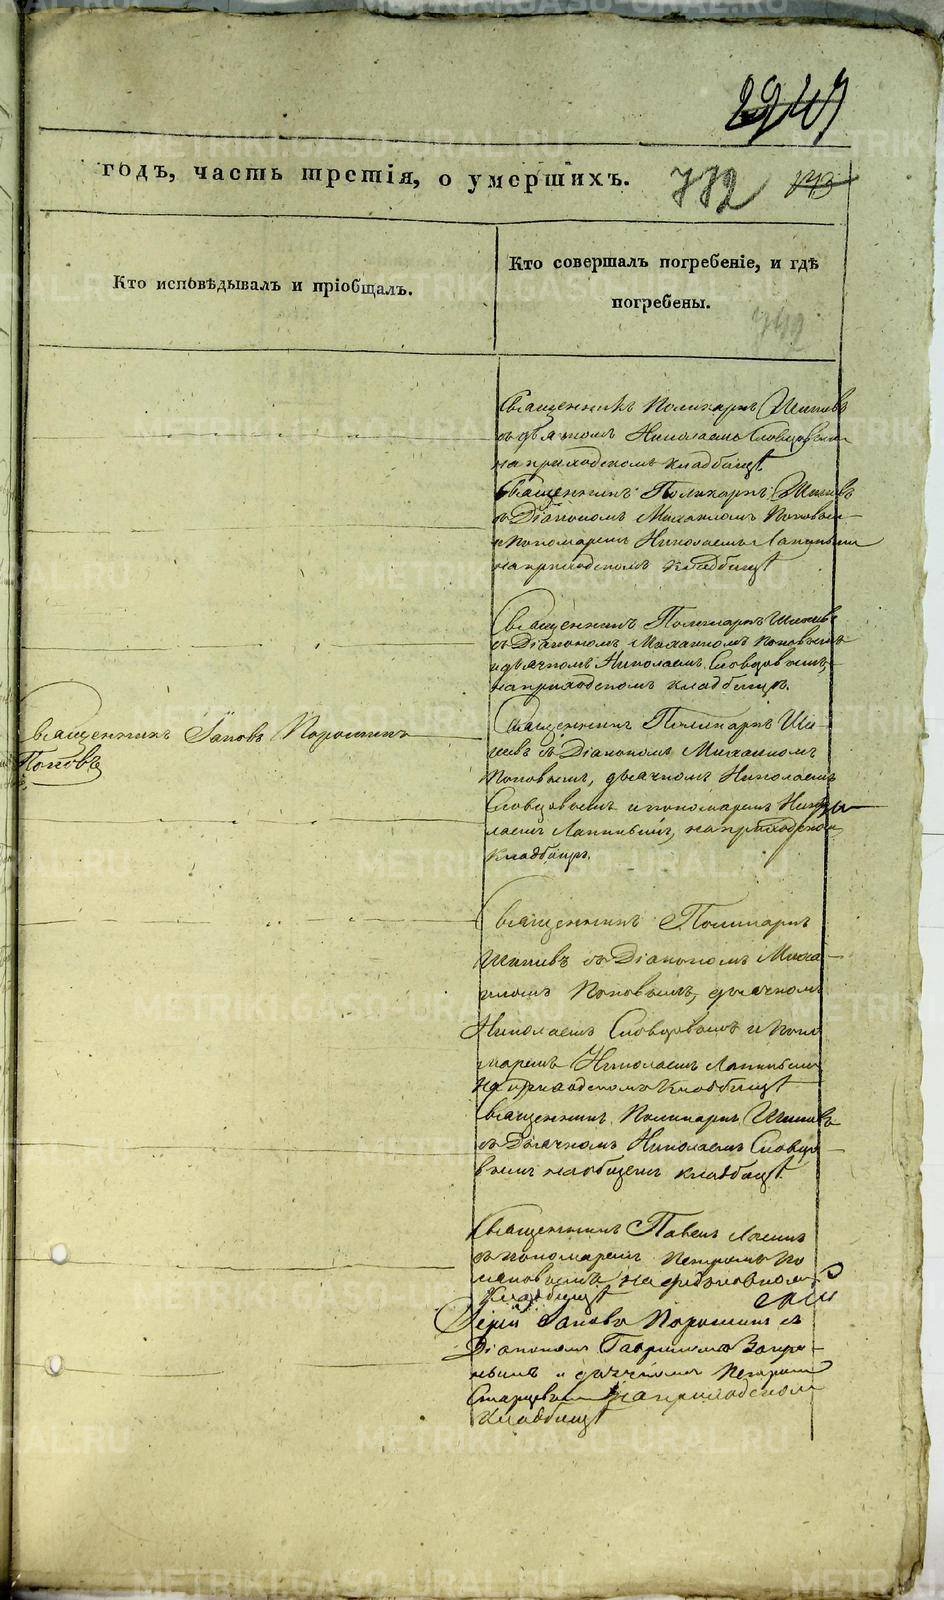 годъ, часть третія, о умершихъ. 772
Кто исповѣдывалъ и пріобщалъ.
Кто совершалъ погребеніе, и гдѣ
погребены.
742
Священникъ Поликарпъ
съ дьячкомъ Николаемъ Словцовымъ
на приходскомъ кладбищѣ.
Священникъ Поликарпъ
съ Діакономъ Михаиломъ Поповым
и Пономаремъ Николаемъ
на приходскомъ кладбищѣ
Священникъ Поликарпъ
съ Діакономъ Михаиломъ Поповымъ
и дьячкомъ Николаемъ Словцовымъ,
на приходскомъ кладбищѣ.
Священникъ Іаковъ Порошинъ
Поповъ
Священникъ Поликарпъ
съ Діакономъ Михаиломъ
Поповымъ, дьячкомъ Николаемъ
Словцовымъ и пономаремъ Нико
лаемъ Лапинымъ, на приходском
кладбищѣ.
Священникъ Поликарпъ
съ Діакономъ Миха
иломъ Поповымъ, дьячкомъ
Николаемъ Словцовымъ и поно
маремъ Николаемъ Лапиным
на приходскомъ кладбищѣ
Священникъ Поликарпъ
съ Дьячкомъ Николаемъ Словцо
вымъ на общемъ кладбищѣ.
Священникъ Павелъ
съ пономаремъ Петромъ По
на
кладбищѣ
Іерей Іаковъ Порошинъ съ
Діакономъ Гавриломъ
и дьячкомъ Петром
Старцевым на приходском
кладбищѣ
METRIKI.GASO-URAL.RU